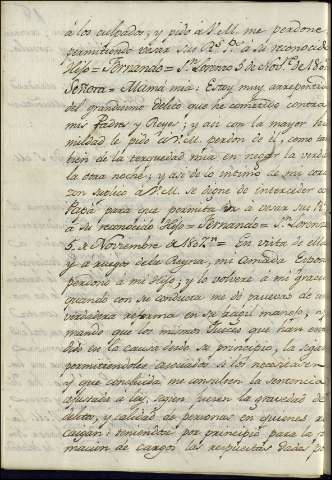 á los culpados; y pido á V.M. me perdone
permitiendo besar sus R.s P.s á su reconocido
Hijo = Fernando = S.n Lorenzo 5 de Nov.e de 180
Señora = Mamá mia: Estoy muy arrepentido
del grandisimo delito que he cometido contra
mis Padres y Reyes; y asi con la mayor hu
mildad le pido á V.M. perdon de él, como tam
bien de la terquedad mia en negar la verdad
la otra noche; y asi de lo intimo de mi cora
zon suplico á V.M. se digne de interceder co
Papá para que permita á besar sus P.s
á su reconocido Hijo = Fernando = S.n Lorenzo
5 de Noviembre de 1807 = En vista de ellas
y á ruegos de la Reyna, mi Amada Esposa
perdono á mi Hijo; y lo volveré á mi gracia
quando con su conducta me dé pruevas de una
verdadera reforma en su fragil manejo, y
mando que los mismos Jueces que han enten
dido en la causa desde su principio, la sigan
permitiendoles asociados si los necesitasen
y que concluida me consulten la Sentencia
ajustada á ley, segun fueren la gravedad de
delitos, y calidad de personas en quienes re
caigan: teniendose por principio para la for
macion de cargos las respuestas dadas p